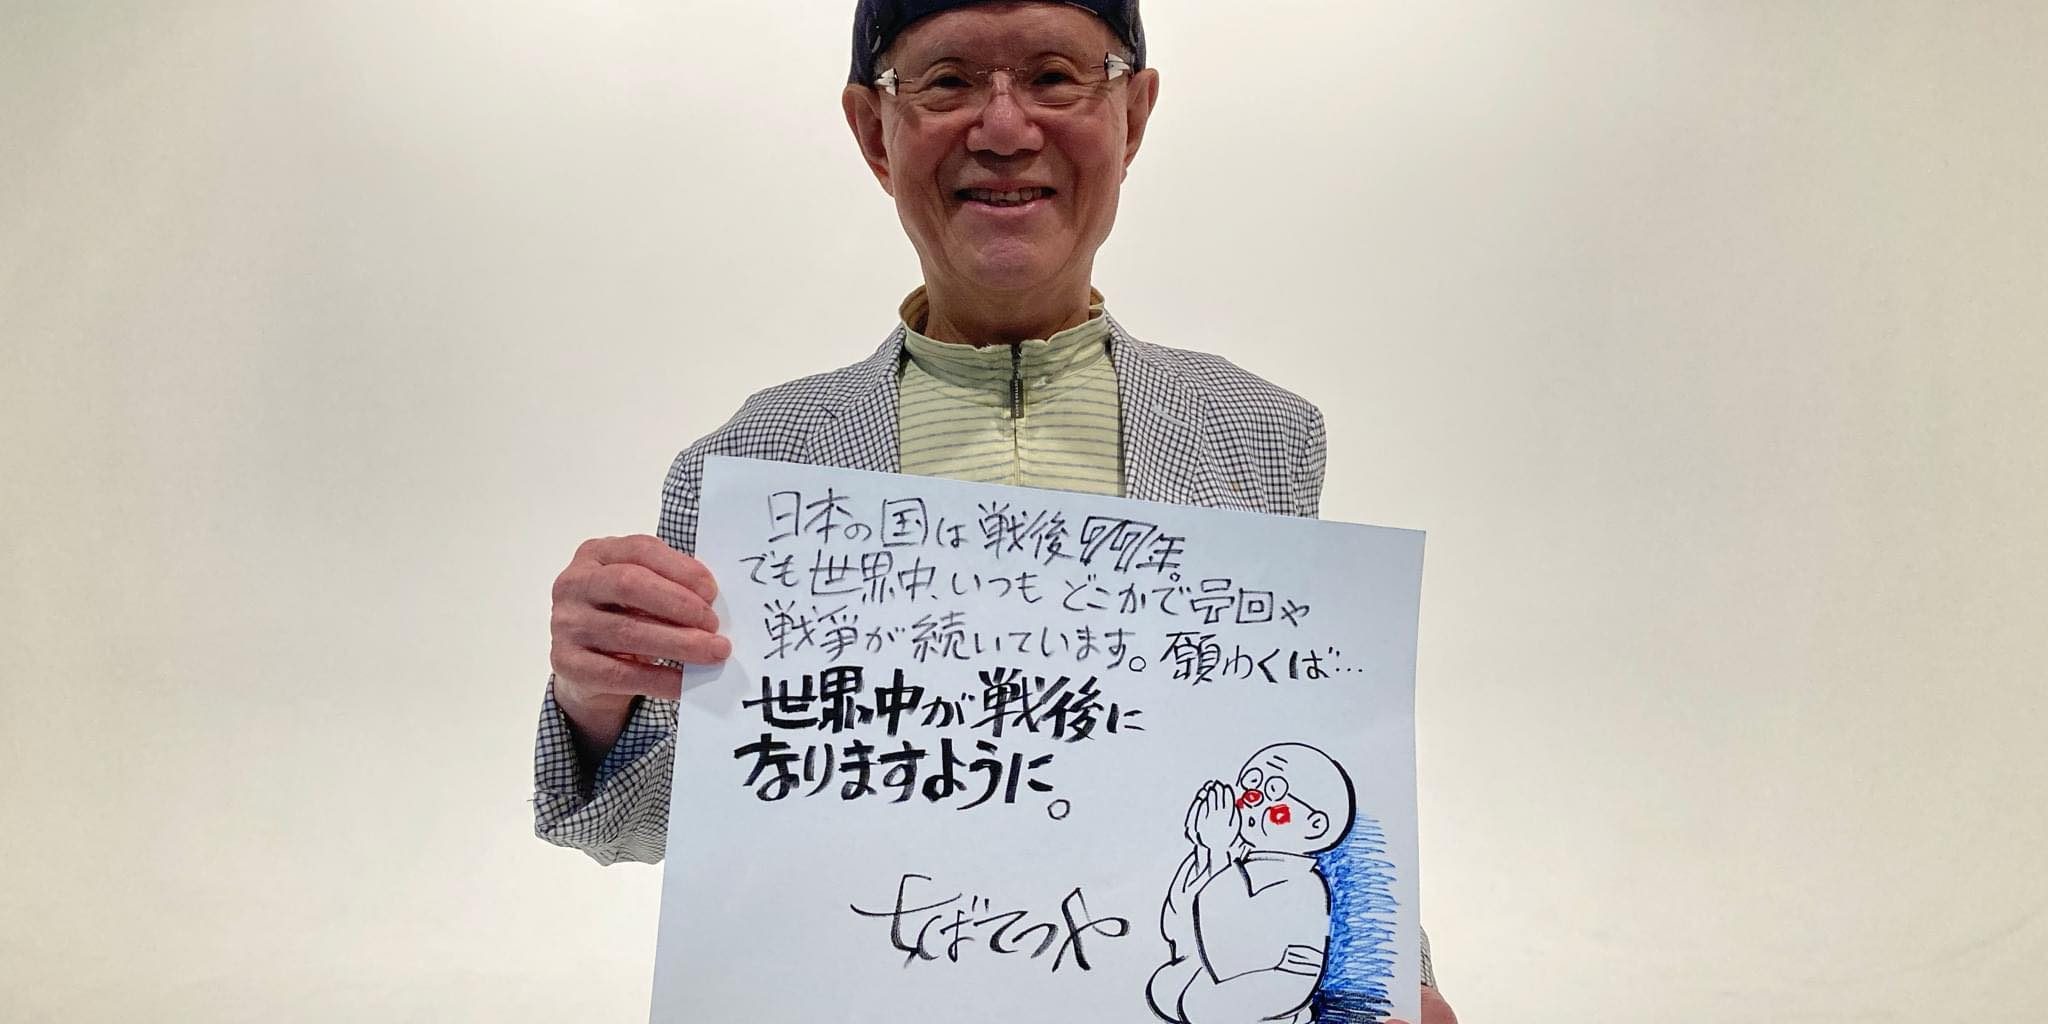 日本の国は戦後77年。
でも世界中、いつもどこかで
戦争が続いています。願わくば…
世界中が戦後に
なりますように。
ちばてつや